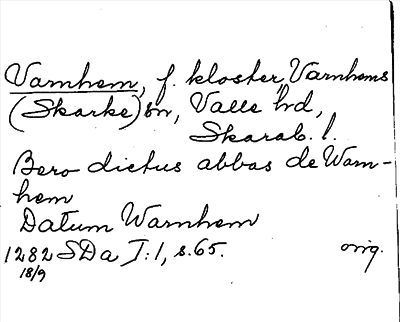 Varnhem, f. kloster, Varnhems
(Skarke) sn, Valle hd,
Skarab. l.
Bero dictus abbas de Warn-
hem
Datum Warnhem
1282 SDa I:1, s. 65. orig.
18/9